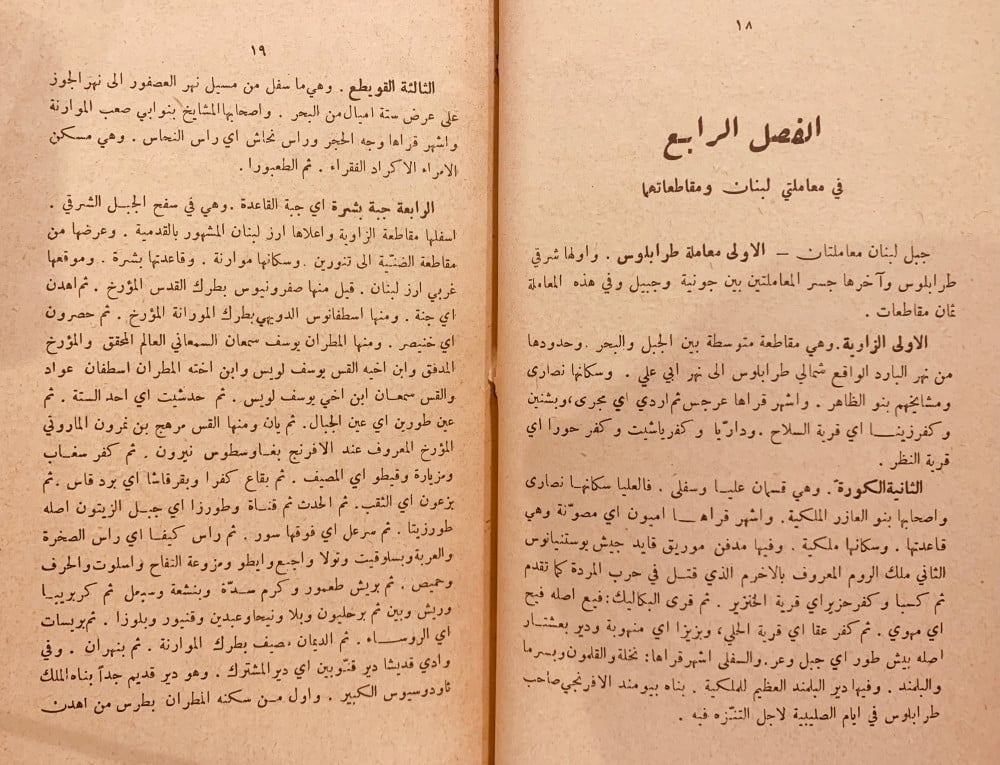 ١٨
الفصل الرابع
في معاملتي لبنان ومقاطعاتهما
جبل لبنان معاملتان — الاولى معاملة طرابلوس . واولها شرقي
طرابلوس وآخرها جسر المعاملتين بين جونية وجبيل وفي هذه المعاملة
ثمان مقاطعات .
الاولى الزاوية . وهي مقاطعة متوسطة بين الجبل والبحر . وحدودها
من نهر البارد الواقع شمالي طرابلوس الى نهر ابي علي . وسكانها نصارى
ومشايخهم بنو الظاهر . واشهر قراها عرجس ثم اردي اي مجرى، وبشنين
وكفرزينا اي قرية السلاح . وداريّا وكفرياشيت وكفر حورا اي
قرية النظر .
الثانية الكورة . وهي قسمان عليا وسفلى . فالعليا سكانها نصارى
واصحابها بنو العازر الملكية . واشهر قراها اميون اي مصوّنة وهي
قاعدتها . وسكانها ملكية . وفيها مدفن موريق قايد جيش يوستنيانوس
الثاني ملك الروم المعروف بالاخرم الذي قتل في حرب المردة كما تقدم
ثم كسبا وكفرحزير اي قرية الخنزير . ثم قرى البكاليك: فيع اصله فيح
اي مهوي . ثم كفر عقا اي قرية الحلي، وبزيزا اي منهوبة ودير بعشتار
اصله بيش طور اي جبل وعر . والسفلى اشهر قراها: نخلة والقلمون وبسرما
والبلمند . وفيها دير البلمند العظيم للملكية . بناه بيومند الافرنجي صاحب
طرابلوس في ايام الصليبية لاجل التنزّه فيه .
١٩
الثالثة القويطع . وهي ما سفل من مسيل نهر العصفور الى نهر الجوز
على عرض ستة اميال من البحر . واصحابها المشايخ بنو ابي صعب الموارنة
واشهر قراها وجه الحجر وراس نحاش اي راس النحاس . وهي مسكن
الامراء الاكراد الفقراء . ثم الطعبورا .
الرابعة جبة بشرة اي جبة القاعدة . وهي في سفح الجبل الشرقي .
اسفلها مقاطعة الزاوية واعلاها ارز لبنان المشهور بالقدمية . وعرضها من
مقاطعة الضنّية الى تنورين . وسكانها موارنة . وقاعدتها بشرة . وموقعها
غربي ارز لبنان . قيل منها صفرونيوس بطرك القدس المؤرخ . ثم اهدن
اي جنة . ومنها اسطفانوس الدويهي بطرك الموارنة المؤرخ . ثم حصرون
اي خنيصر . ومنها المطران يوسف سمعان السمعاني العالم المحقق والمؤرخ
المدقق وابن اخيه القس يوسف لويس وابن اخته المطران اسطفان عواد
والقس سمعان ابن اخي يوسف لويس . ثم حدشيت اي احد الستة . ثم
عين طورين اي عين الجبال . ثم بان ومنها القس مرهج بن نمرون الماروني
المؤرخ المعروف عند الافرنج بغاوسطوس نيرون . ثم كفر سغاب
ومزيارة وقيطو اي المصيف . ثم بقاع كفرا وبقرقاشا اي برد قاس . ثم
بزعون اي الثقب . ثم الحدث ثم قناة وطورزا اي جبل الزيتون اصله
طورزيتا . ثم سرعل اي فوقها سور . ثم راس كيفا اي راس الصخرة
والعربة وبسلوقيت وتولا واجبع وايطو ومزرعة التفاح واسلوت والحرف
وحميص . ثم بريش طعمور وكرم سدّة وبنشعة وسبعل ثم كربريبا
وريش وبين ثم برحليون وبلا ونيحا وعبدين وقنيور وبلوزا . ثم بريسات
اي الروساء . ثم الديمان مصيف بطرك الموارنة . ثم بنهران . وفي
وادي قديشا دير قنّوبين اي دير المشترك . وهو دير قديم جداً بناه الملك
ثاودوسيوس الكبير . واول من سكنه المطران بطرس من اهدن